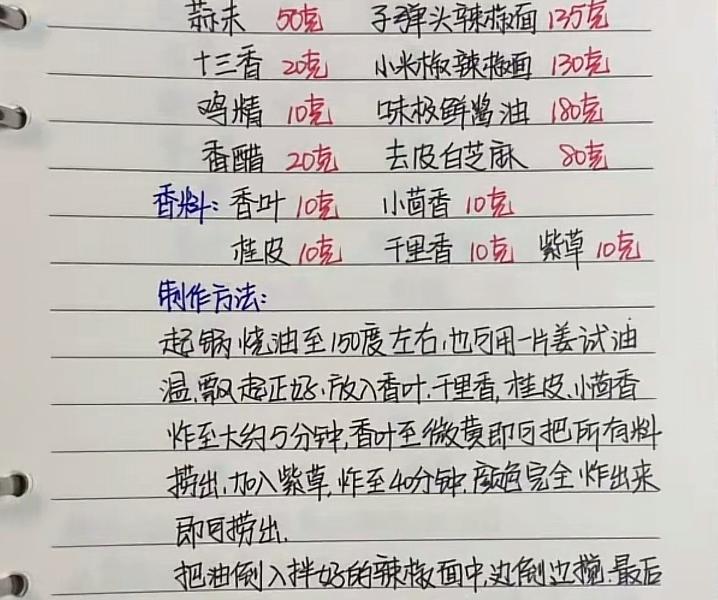 蒜末 50克 子弹头辣椒面 135克
十三香 20克 小米椒辣椒面 130克
鸡精 10克 味极鲜酱油 180克
香醋 20克 去皮白芝麻 80克
香料: 香叶 10克 小茴香 10克
桂皮 10克 千里香 10克 紫草 10克
制作方法:
起锅,烧油至150度左右,也可用一片姜试油
温,飘起正好,放入香叶,千里香,桂皮,小茴香
炸至大约5分钟,香叶至微黄即可把所有料
捞出,加入紫草,炸至40分钟,颜色完全炸出来
即可捞出.
把油倒入拌好的辣椒面中,边倒边搅.最后